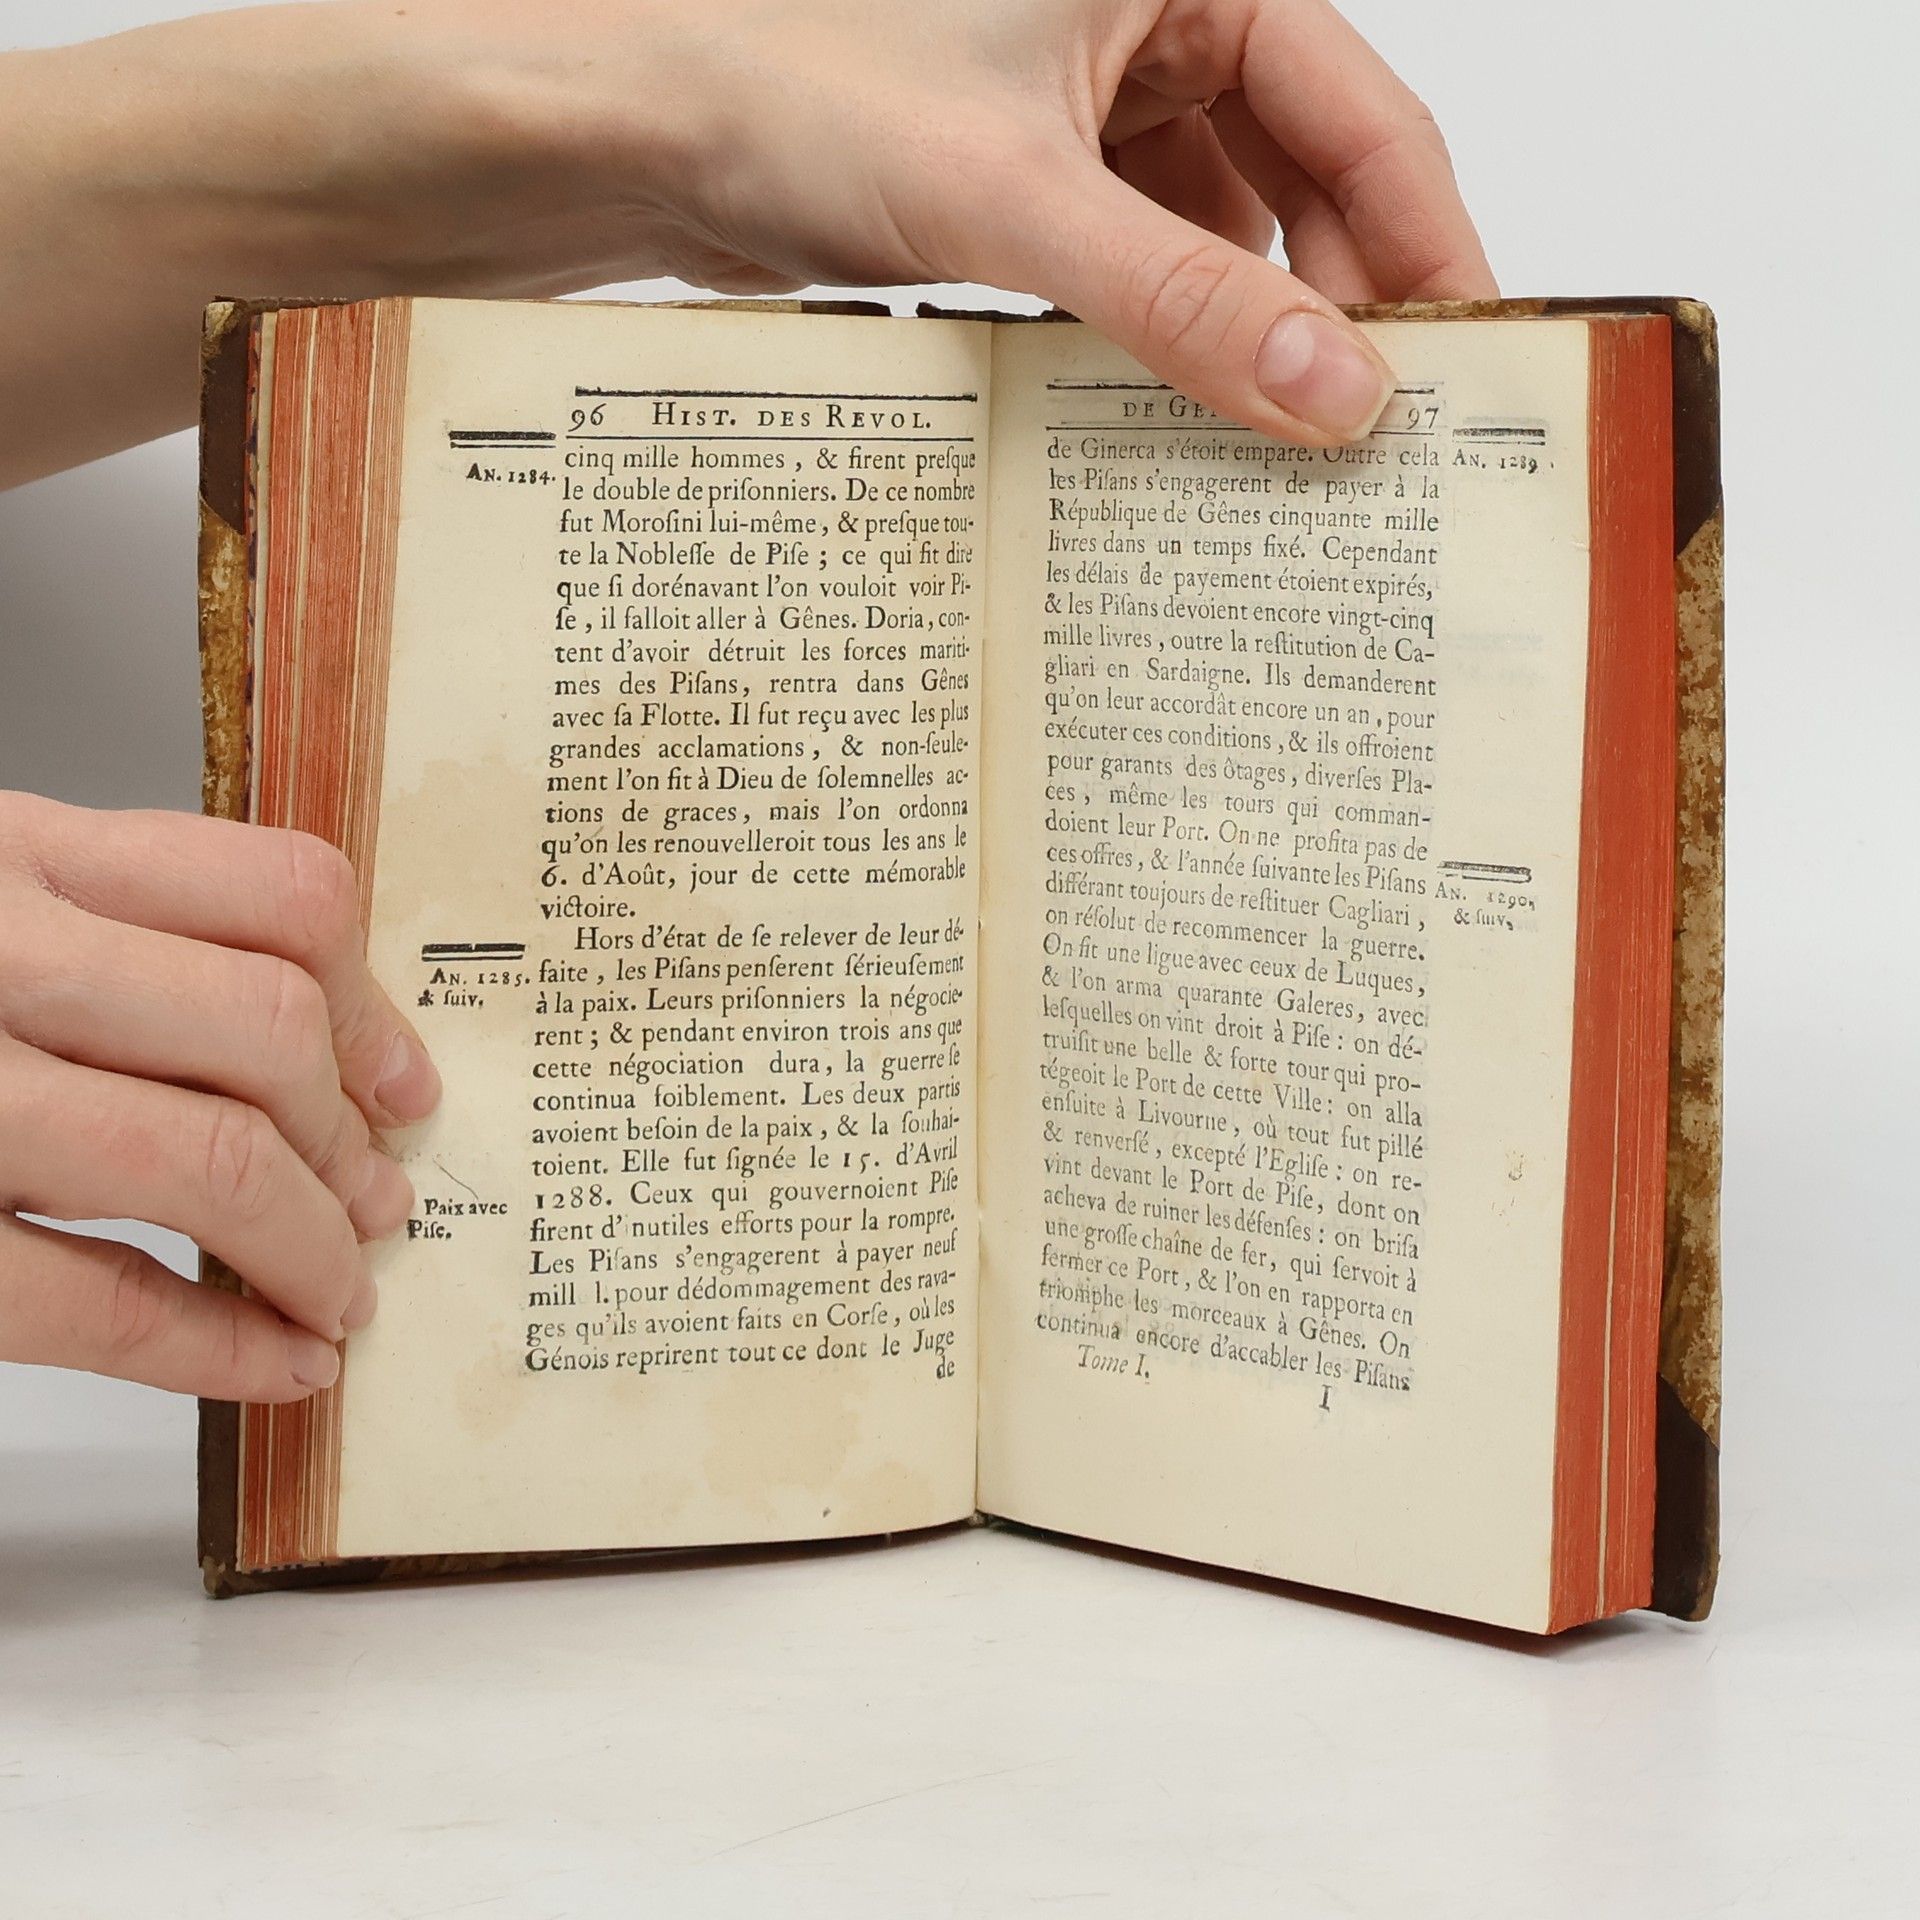 96 HIST. DES REVOL.
AN. 1284.
cinq mille hommes, & firent preſque
le double de priſonniers. De ce nombre
fut Moroſini lui-même, & preſque tou-
te la Nobleſſe de Piſe ; ce qui fit dire
que ſi dorénavant l'on vouloit voir Pi-
ſe, il falloit aller à Gênes. Doria, con-
tent d'avoir détruit les forces mariti-
mes des Piſans, rentra dans Gênes
avec ſa Flotte. Il fut reçu avec les plus
grandes acclamations, & non-ſeule-
ment l'on fit à Dieu de ſolemnelles ac-
tions de graces, mais l'on ordonna
qu'on les renouvelleroit tous les ans le
6. d'Août, jour de cette mémorable
victoire.
Hors d'état de ſe relever de leur dé-
AN. 1285.
& ſuiv.
faite, les Piſans penſerent ſérieuſement
à la paix. Leurs priſonniers la négocie-
rent ; & pendant environ trois ans que
cette négociation dura, la guerre ſe
continua foiblement. Les deux partis
avoient beſoin de la paix, & la ſouhai-
toient. Elle fut ſignée le 15. d'Avril
Paix avec
Piſe.
1288. Ceux qui gouvernoient Piſe
firent d'inutiles efforts pour la rompre.
Les Piſans s'engagerent à payer neuf
mill l. pour dédommagement des rava-
ges qu'ils avoient faits en Corſe, où les
Génois reprirent tout ce dont le Juge
de
DE 97
AN. 1289.
de Ginerca s'étoit emparé. Outre cela
les Piſans s'engagerent de payer à la
République de Gênes cinquante mille
livres dans un temps fixé. Cependant
les délais de payement étoient expirés,
& les Piſans devoient encore vingt-cinq
mille livres, outre la reſtitution de Ca-
gliari en Sardaigne. Ils demanderent
qu'on leur accordât encore un an, pour
exécuter ces conditions, & ils offroient
pour garants des ôtages, diverſes Pla-
ces, même les tours qui comman-
doient leur Port. On ne profita pas de
ces offres, & l'année ſuivante les Piſans
AN. 1290,
& ſuiv,
différant toujours de reſtituer Cagliari,
on réſolut de recommencer la guerre.
On fit une ligue avec ceux de Luques,
& l'on arma quarante Galeres, avec
leſquelles on vint droit à Piſe : on dé-
truiſit une belle & forte tour qui pro-
tégeoit le Port de cette Ville : on alla
enſuite à Livourne, où tout fut pillé
& renverſé, excepté l'Egliſe : on re-
vint devant le Port de Piſe, dont on
acheva de ruiner les défenſes : on briſa
une groſſe chaîne de fer, qui ſervoit à
fermer ce Port, & l'on en rapporta en
triomphe les morceaux à Gênes. On
continua encore d'accabler les Piſans
Tome I.
I